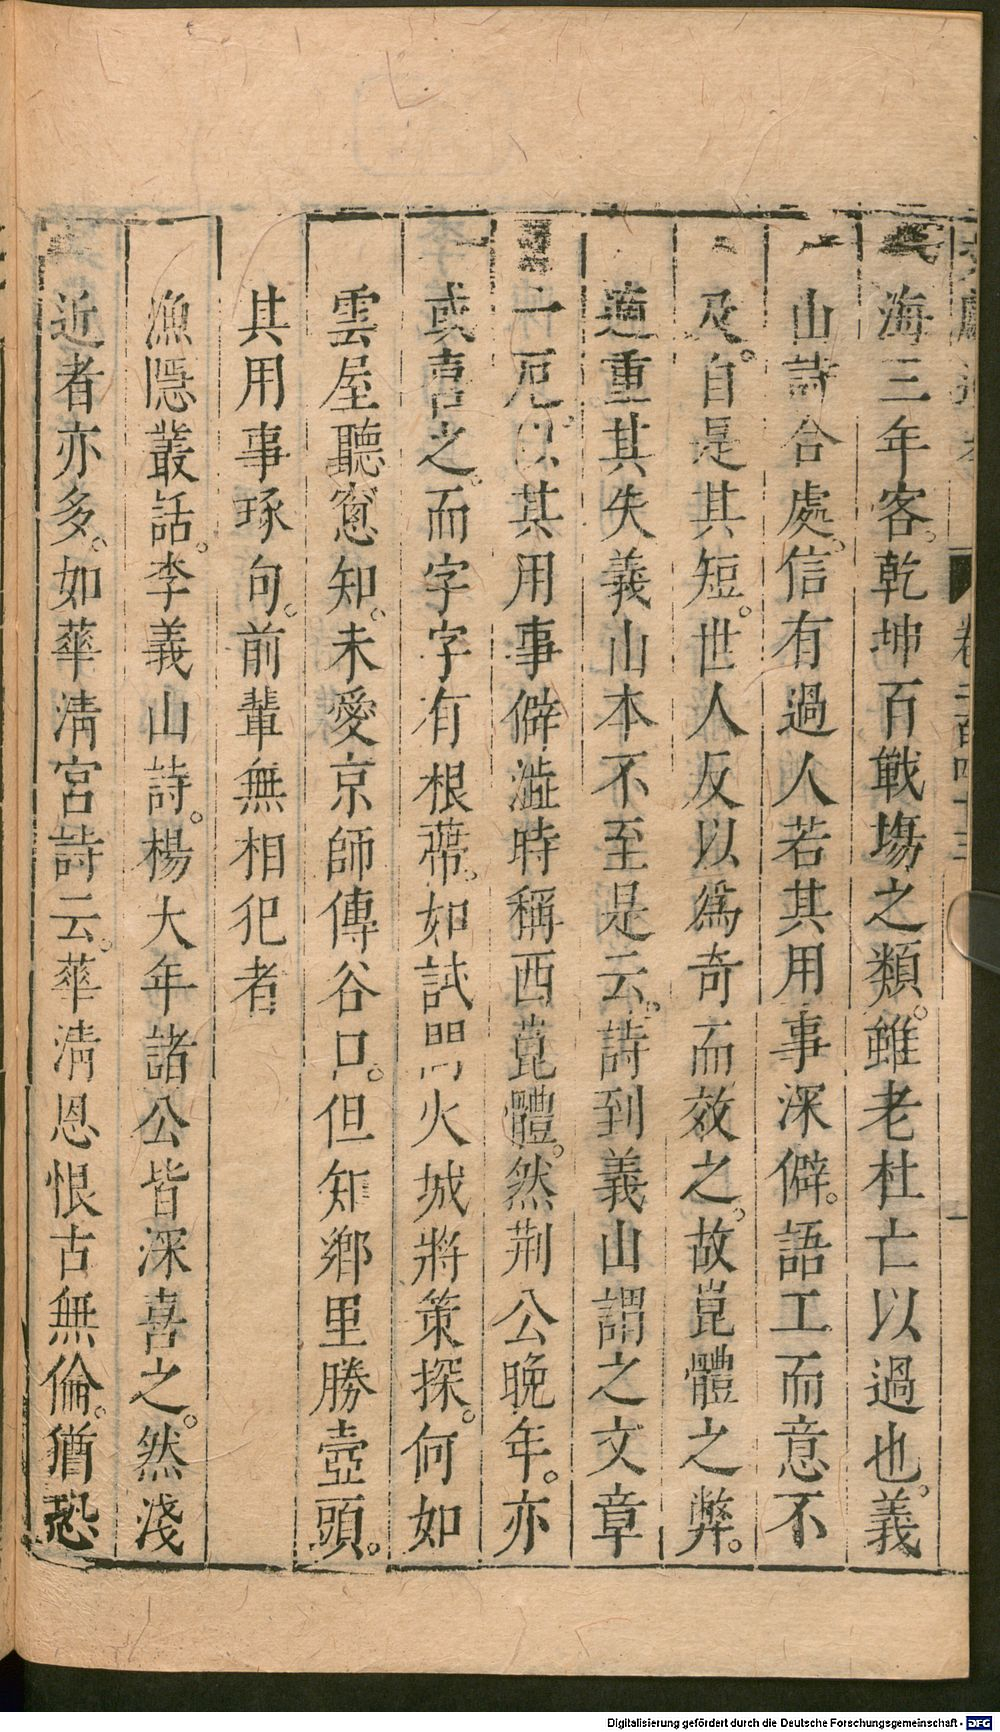 海三年客乾坤百戰塲之類雖老杜亡以過也義
山詩合處信有過人若其用事深僻語工而意不
及自是其短世人反以爲奇而效之故崑體之弊
適重其失義山本不至是云詩到義山謂之文章
一厄以其用事僻澁時稱西崑體然荆公晚年亦
或喜之而字字有根蔕如試問火城將策探何如
雲屋聽窻知未愛京師傳谷口但知鄉里勝壺頭
其用事琢句前輩無相犯者
漁隱叢話李義山詩楊大年諸公皆深喜之然淺
近者亦多如華清宮詩云華清恩恨古無倫猶恐
Digitalisierung gefördert durch die Deutsche Forschungsgemeinschaft - DFG